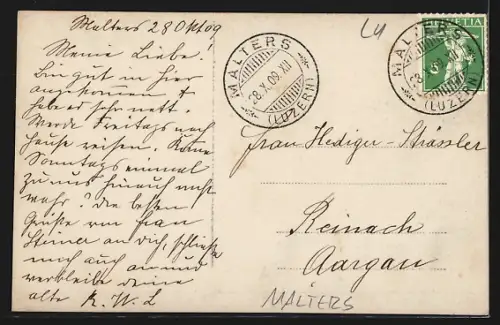 Malters 28 Okt 09
Meine Liebe!
Bin gut in hier
angekommen &
habe es sehr nett.
Werde Freitags nach
Hause reisen. Komme
Sonntags einmal
zu uns hinauf nicht
wahr? Die besten
Grüße von Frau
Steiner an dich, schließe
mich auch an und
verbleibe deine
alte R. W. L
MALTERS
28.X.09.XII
(LUZERN)
LU
HELVETIA
MALTERS
28.X.09
(LUZERN)
Frau Hediger-Strässler
Reinach
Aargau
MALTERS